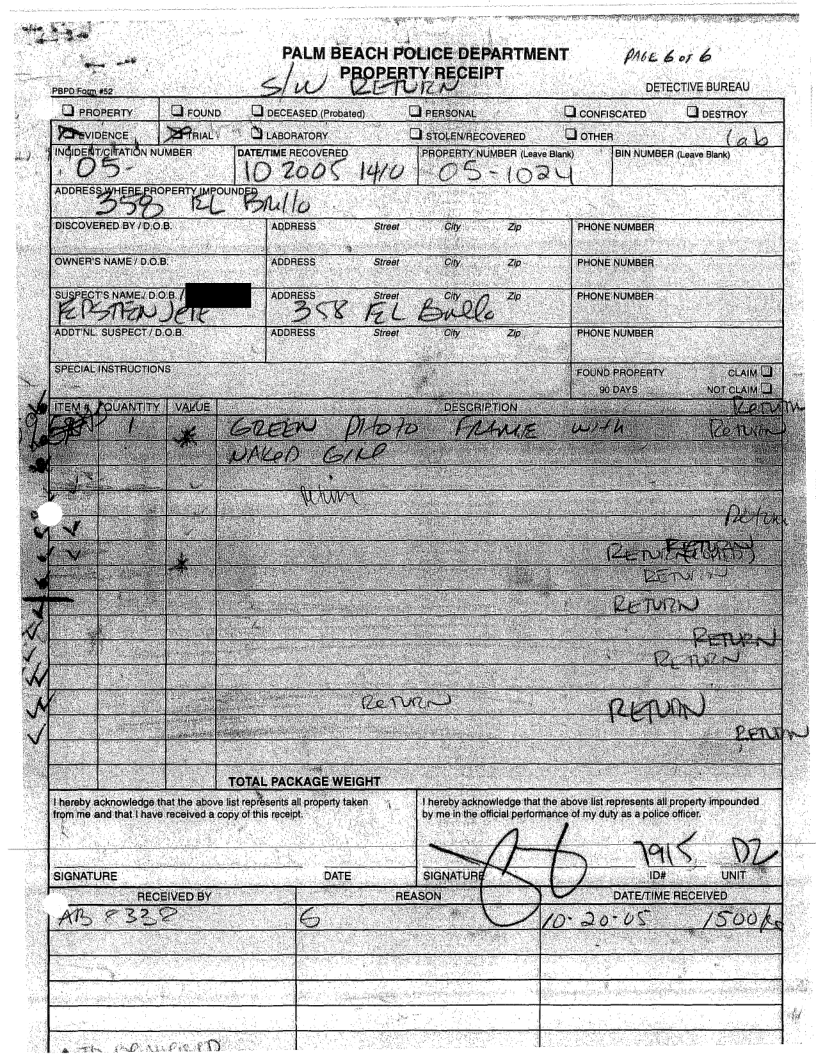 PALM BEACH POLICE DEPARTMENT PAGE 6 OF 6
PROPERTY RECEIPT
S/W RETURN
PBPD Form #52 DETECTIVE BUREAU
PROPERTY FOUND DECEASED (Probated) PERSONAL CONFISCATED DESTROY
EVIDENCE TRIAL LABORATORY STOLEN/RECOVERED OTHER lab
INCIDENT/CITATION NUMBER DATE/TIME RECOVERED PROPERTY NUMBER (Leave Blank) BIN NUMBER (Leave Blank)
05- 10 2005 1410 05-1024
ADDRESS WHERE PROPERTY IMPOUNDED
358 EL Brillo
DISCOVERED BY / D.O.B. ADDRESS Street City Zip PHONE NUMBER
OWNER'S NAME / D.O.B. ADDRESS Street City Zip PHONE NUMBER
SUSPECT'S NAME / D.O.B. / ADDRESS Street City Zip PHONE NUMBER
358 EL Brillo
ADDT'NL. SUSPECT / D.O.B. ADDRESS Street City Zip PHONE NUMBER
SPECIAL INSTRUCTIONS FOUND PROPERTY CLAIM
90 DAYS NOT CLAIM
ITEM # QUANTITY VALUE DESCRIPTION Return
1 * GREEN PHOTO FRAME with Return
NAKED GIRL
Return
Return
RETURN
* RETURN
RETURN
RETURN
RETURN
RETURN RETURN
RETURN
TOTAL PACKAGE WEIGHT
I hereby acknowledge that the above list represents all property taken I hereby acknowledge that the above list represents all property impounded
from me and that I have received a copy of this receipt. by me in the official performance of my duty as a police officer.
7915 D2
SIGNATURE DATE SIGNATURE ID# UNIT
RECEIVED BY REASON DATE/TIME RECEIVED
AB 8338 6 10-20-05 1500